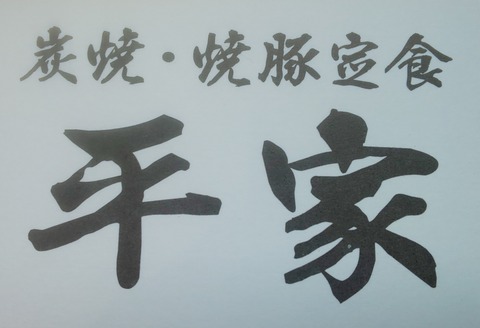 炭焼・焼豚定食
平家